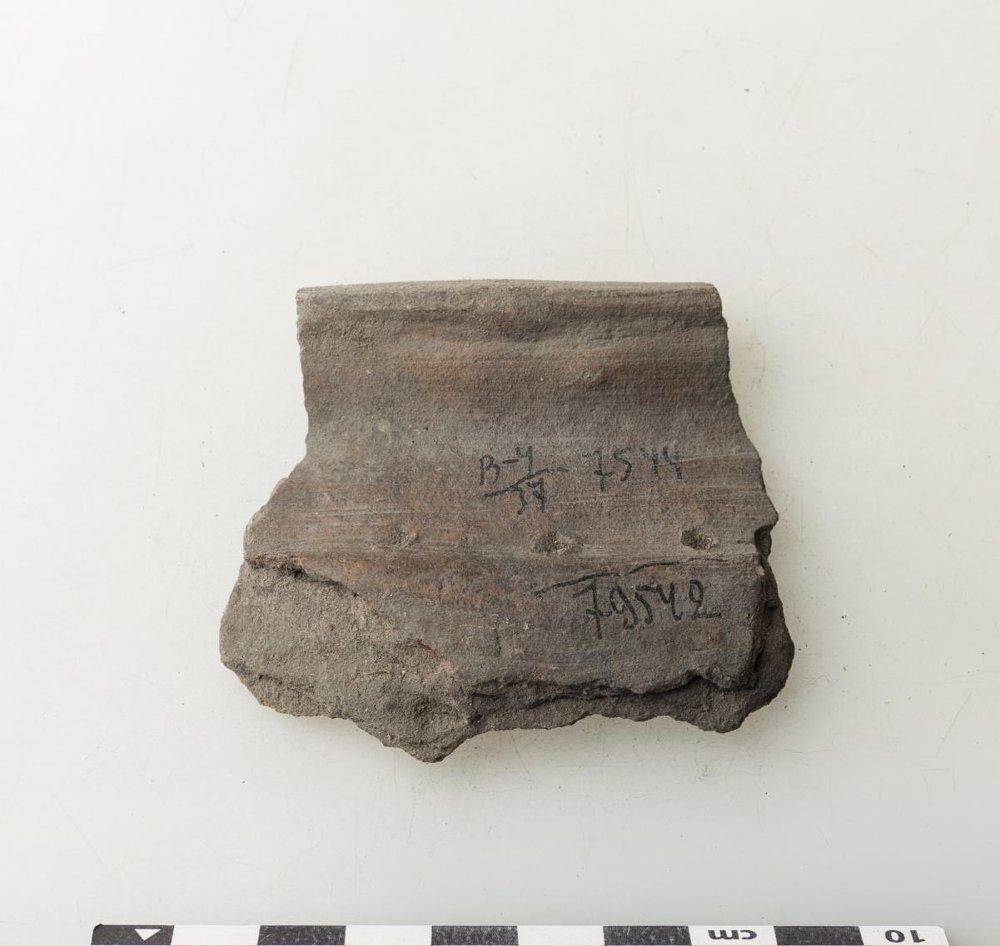 В-4/37 7544
79542
cm
10